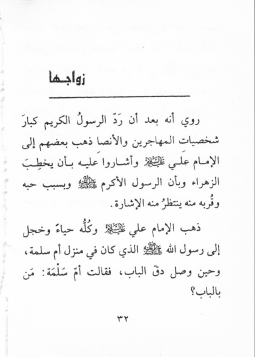 زواجها
روي أنه بعد أن رَدّ الرسولُ الكريم كبارَ
شخصيات المهاجرين والأنصا ذهب بعضهم إلى
الإمام علي ﷺ وأشاروا عليه بأن يخطِبَ
الزهراء وبأن الرسول الأكرم ﷺ وبسبب حبه
وقُربه منه ينتظرُ منه الإشارة.
ذهب الإمام علي ﷺ وكُلُّه حياءً وخجل
إلى رسول الله ﷺ الذي كان في منزل أم سلمة،
وحين وصل دقّ الباب، فقالت أمّ سَلَمَة: مَن
بالباب؟
٣٢